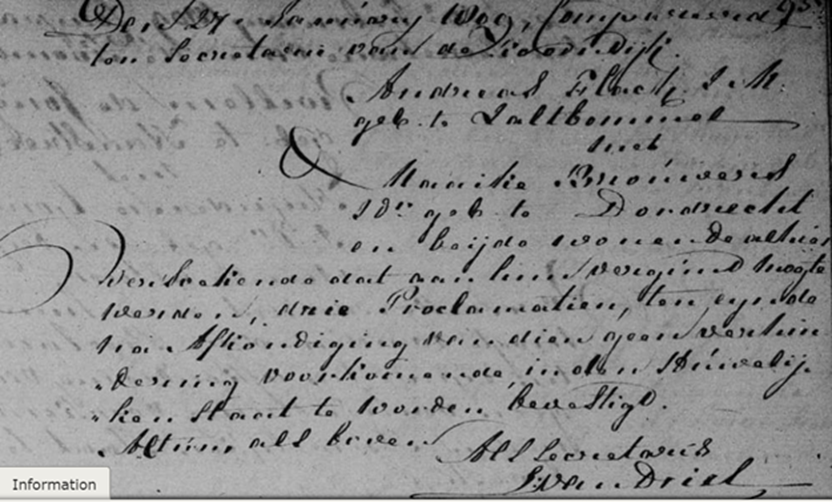 Den 27 Januarij 1809, Compareerde
ten Secretarie van de
Andreas Flach J:M:
geb: te Zaltbommel
met
Maaike Brouwers
J D: geb: te Dordrecht
en beijde wonende alhier
versoekende dat aan hun vergund mogte
werden, drie Proclamatien, ten eynde
na Afkondiging van dien geen verhin
dering voorkomende, in den Húwelij
ken Staat te worden bevestigd.
Actum als boven
Als Secretaris
van Driel
Information